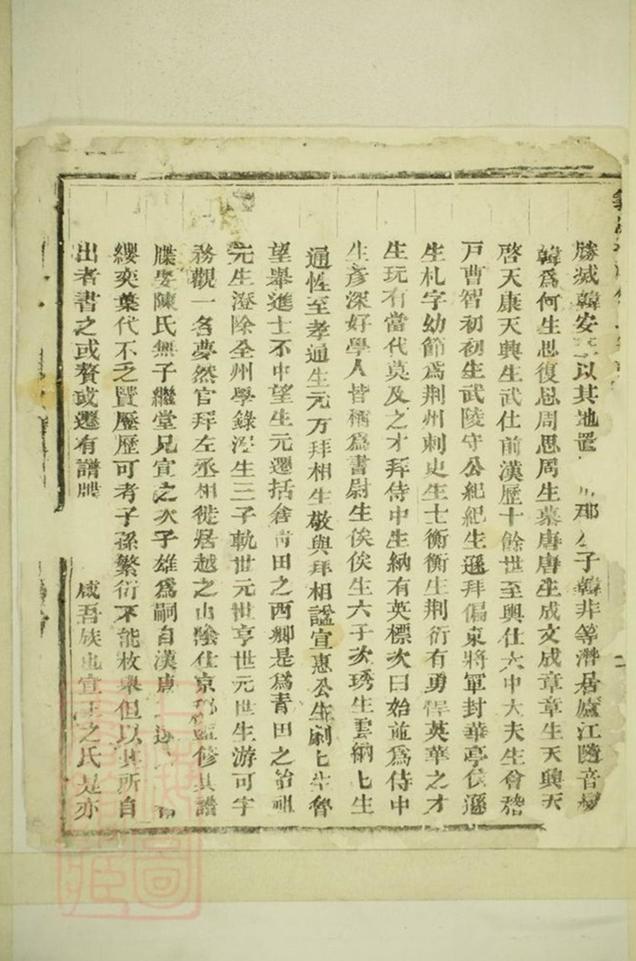 勝滅韓安王以其地置 郡公子韓非等潛居廬江隨音
韓爲何生思復思周思周生慕唐唐生成文成章章生天興天
啓天康天興生武仕前漢歷十餘世至興仕太中大夫生會稽
戸曹智初初生武陵守公紀紀生遜拜偏東將軍封華亭侯遜
生札字幼節爲荆州刺史生士衡衡生荆衍有勇悍英華之才
生玩有當代莫及之才拜侍中生納有英標次曰始並爲侍中
生彥深好學人皆稱爲書尉生俟俟生六子次琇生雲納七生
通性至孝通生元万拜相生敬與拜相諡宣惠公生嗣七生
望舉進士不中望生元遷括倉青田之西鄉是爲青田之始祖
元生澄除全州學錄澄生三子軌世元世亨世元世生游可字
務觀一名夢然官拜左丞相徙居越之山陰仕京 監修其譜
牒娶陳氏無子繼堂兄宣之次子雄爲嗣自漢
纓奕葉代不乏賢歷歷可者子孫繁衍不能枚舉但以其所自
出者書之或贅或遷有譜牒 咸吾族也宣 之氏是亦